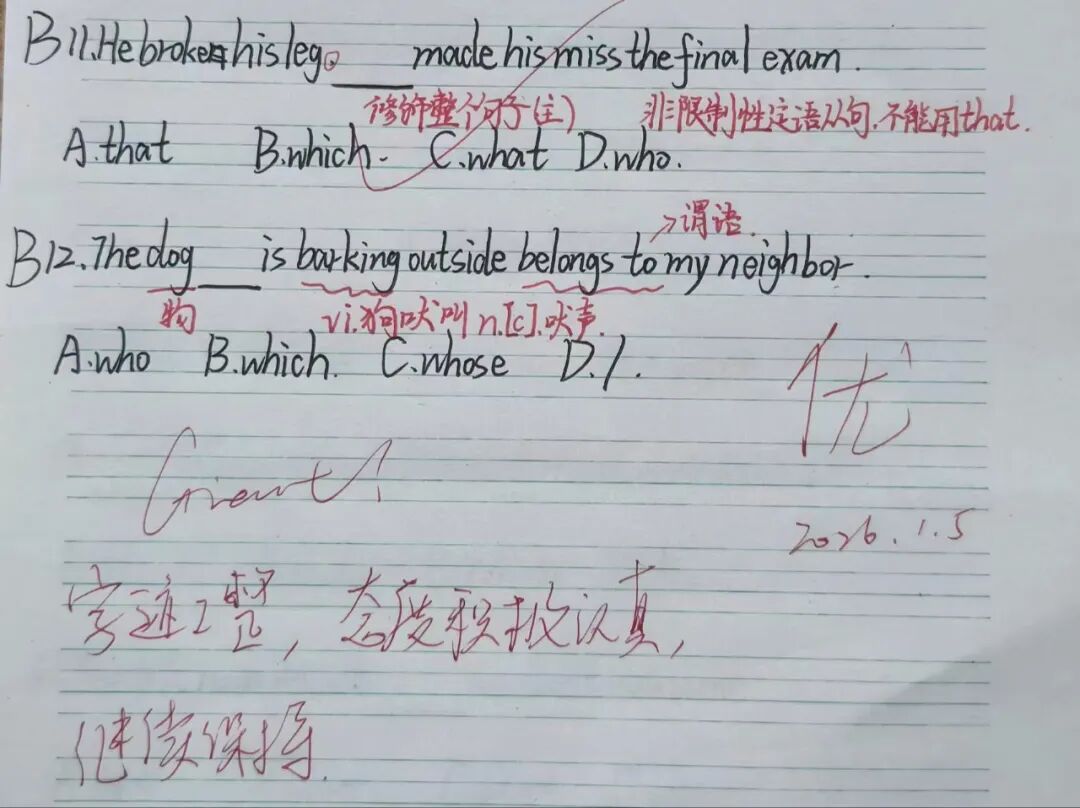 B11.He broke his leg。____made his miss the final exam.
修饰整个句子(主) 非限制性定语从句.不能用that.
A.that B.which. C.what D.who.
>谓语.
B12.The dog ____ is barking outside belongs to my neighbor.
物 vi.狗吠叫 n.[c].吠声.
A.who B.which. C.whose D./.
优
Great!
2026.1.5
字迹工整,态度积极认真,
继续保持.